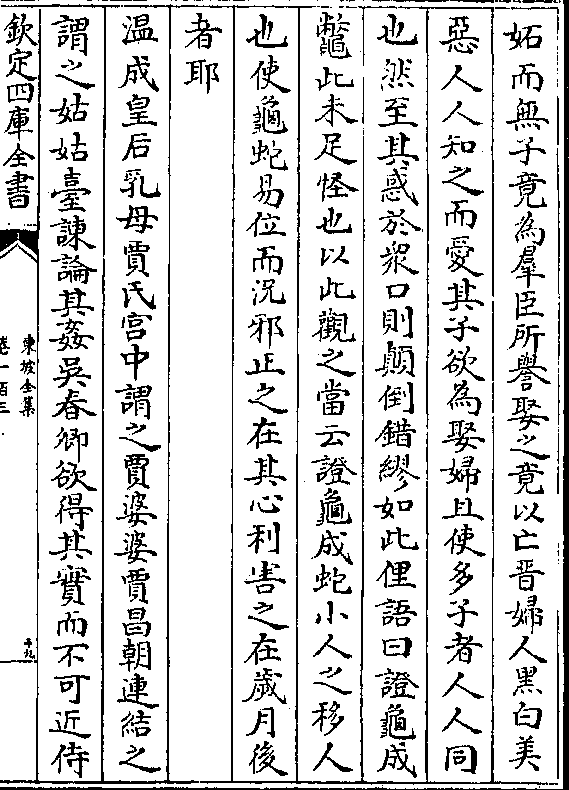 妬而無子竟為羣臣所譽娶之竟以亡晋婦人黒白美
惡人人知之而愛其子欲為娶婦且使多子者人人同
也然至其惑於衆口則顛倒錯繆如此俚語曰證龜成
鼈此未足怪也以此觀之當云證龜成蛇小人之移人
也使龜蛇易位而況邪正之在其心利害之在歲月後
者耶
温成皇后乳母賈氏宮中謂之賈婆婆賈昌朝連結之
謂之姑姑臺諫論其姦吳春卿欲得其實而不可近侍
欽定四庫全書
東坡全集
卷一百三
十九